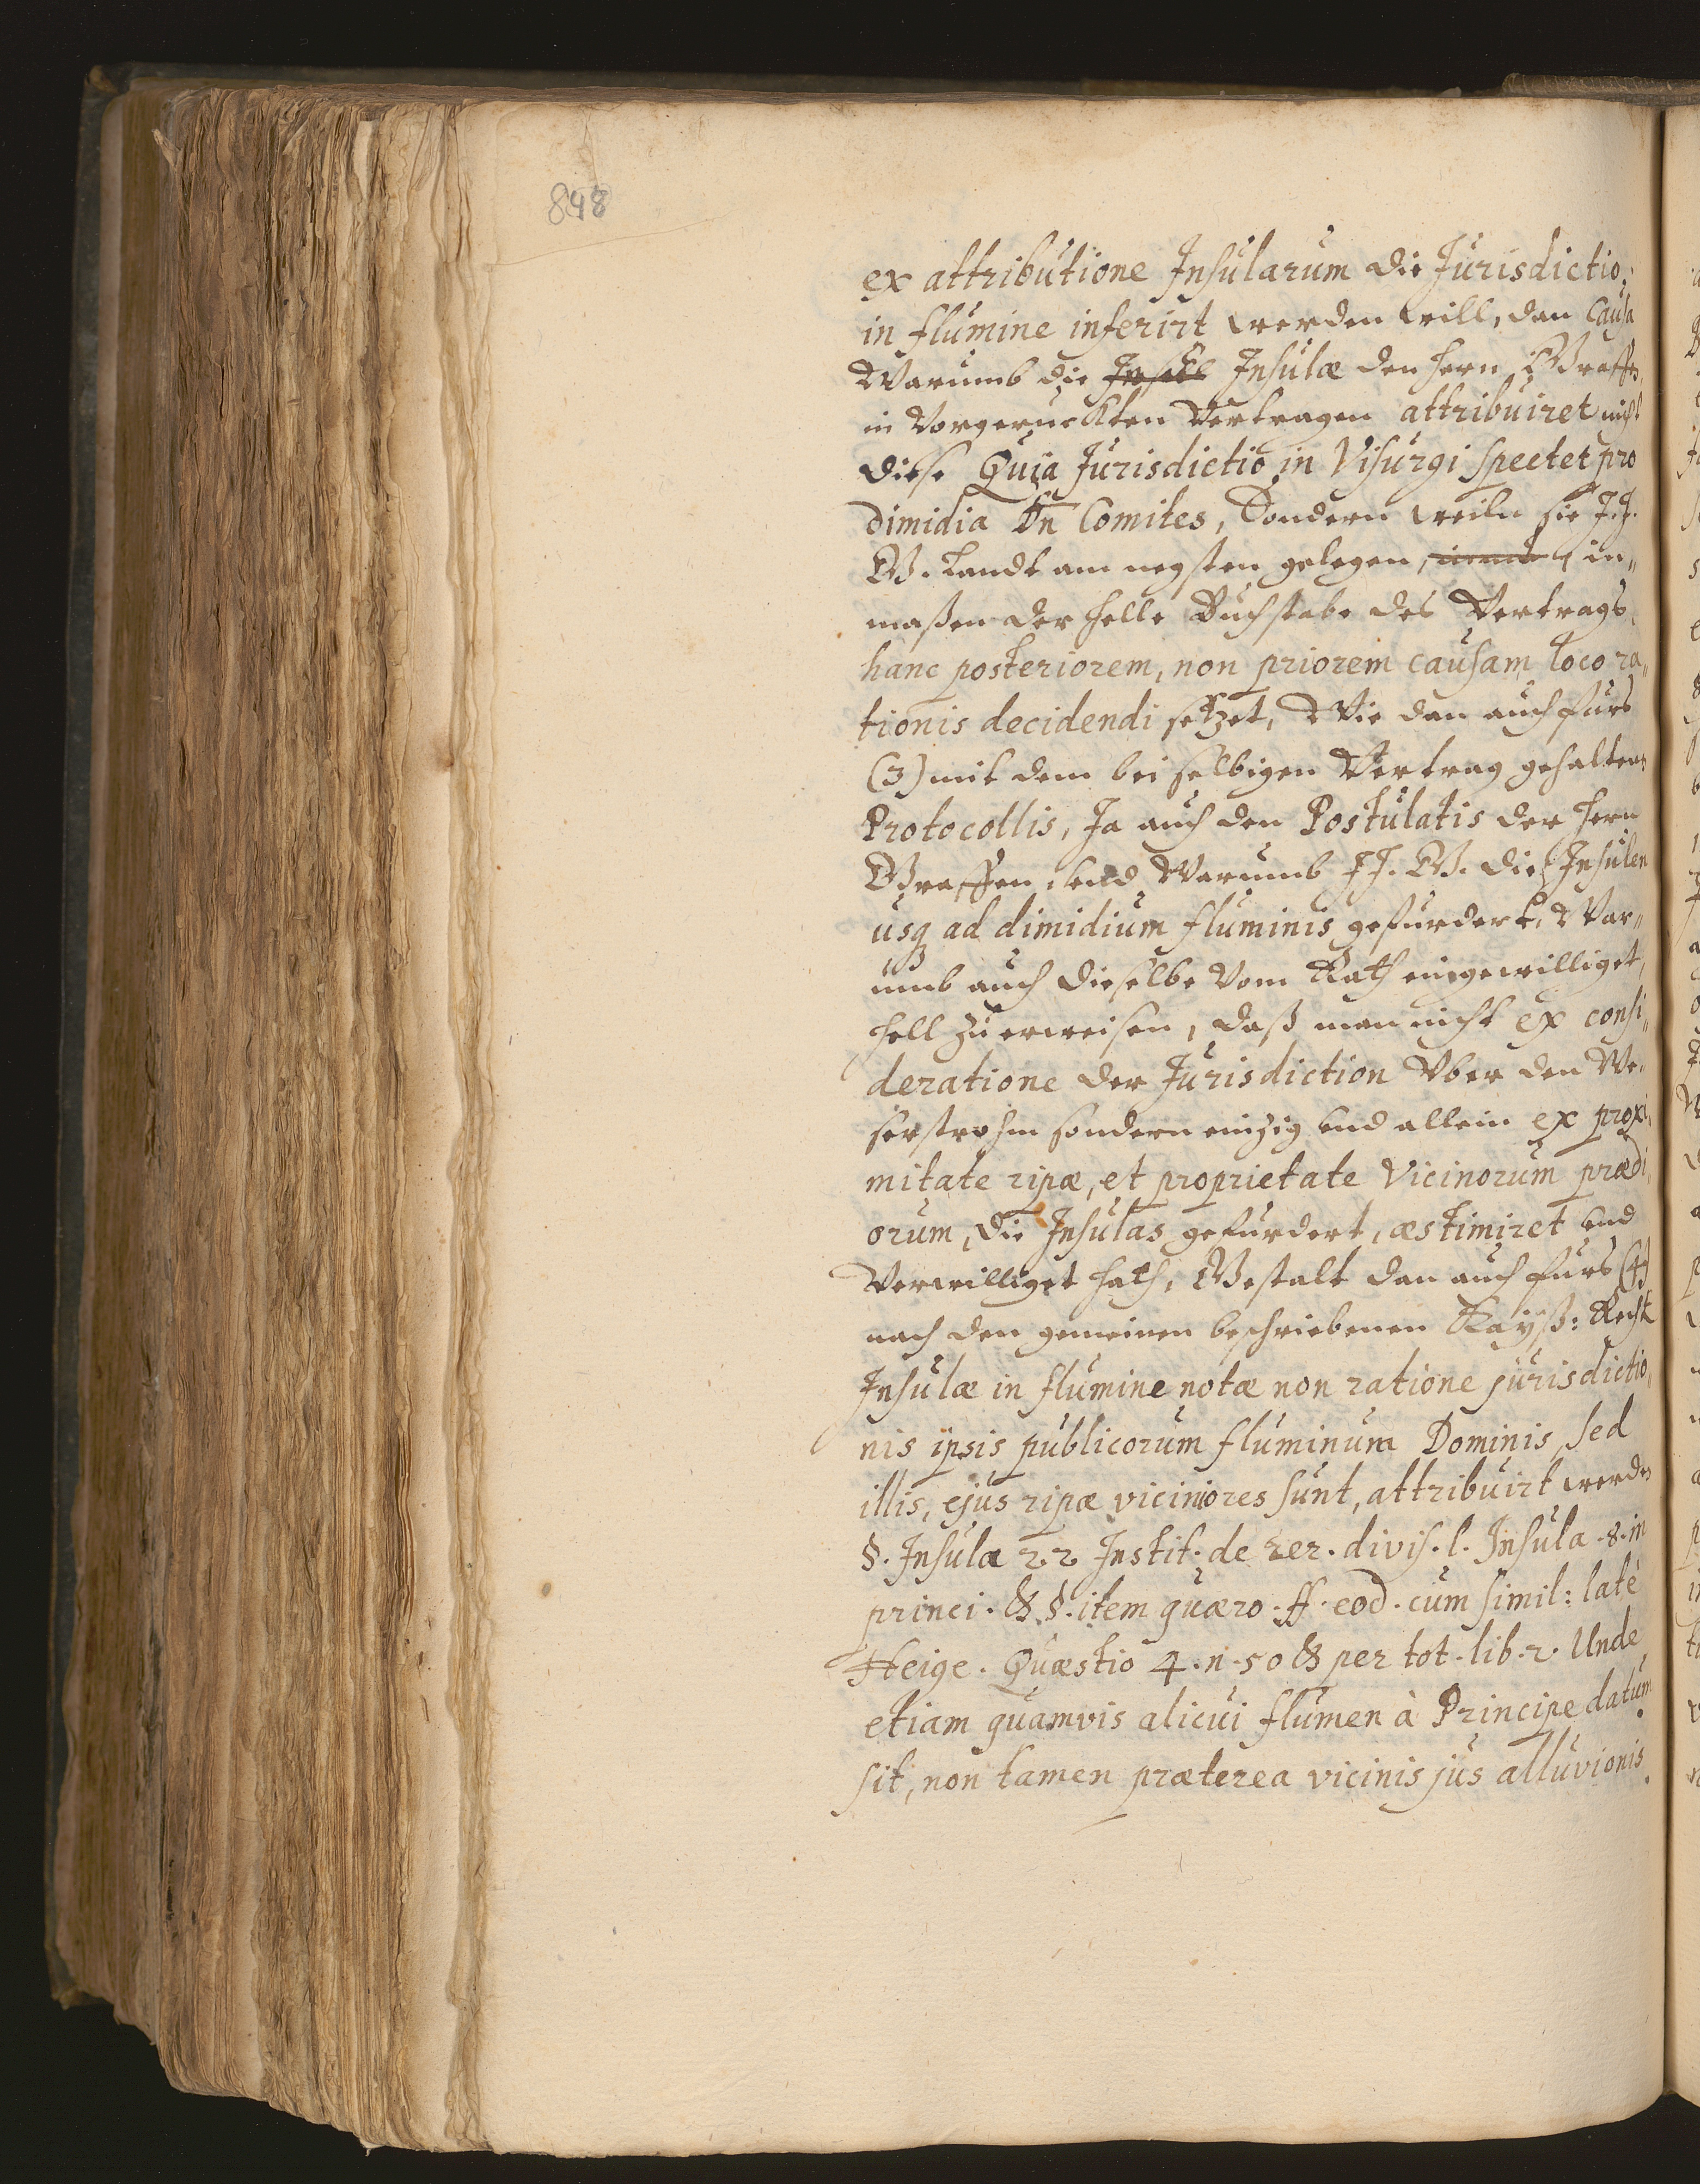 848
ex attributione Insularum die Jurisdictio,
in flumine inferirt werden will, dan Causa
Warumb die Insell Insulæ den Hern Graffen
in Vorgeruckten Vertragen attribuiret nicht
diese Quia Jurisdictio in Visurgi spectet pro
dimidia Dn Comites, Sondern weiln sie J.J.
G. Landt am negsten gelegen, in„
maßen der helle Buchstabe des Vertrags
hanc posteriorem, non priorem causam, loco ra„
tionis decidendi setzet, Wie dan auch fürs
(3) mit dem bei selbigen Vertrag gehalten
Protocollis, Ja auch den Postulatis der Hern
Graffen, und Warumb JJ. G. die Insulen
usq ad dimidium fluminis gefurdert, War„
umb auch dieselbe Vom Rath eingewilliget,
hell zu erweisen, daß man nicht ex consi„
deratione der Jurisdiction Vber den We„
serstrohm sondern einzig und allein ex proxi„
mitate ripæ, et proprietate Vicinorum prædi„
orum, die Insulas gefurdert, æstimiret und
Verwilliget hath, Gestalt dan auch fürs (4)
nach den gemeinen beschriebenen Kayß: Recht
Insulæ in flumine notæ non ratione jurisdictio„
nis ipsis publicorum fluminum Dominis, sed
illis, ejus ripæ viciniores sunt, attribuirt werden
§. Insula 22 Instit. de rer. divis. l. Insula .8. in
princi. & §. item quæro. ff. eod. cum simil: latè
Heige. Quæstio 4. n. 50 & per tot. lib. 2. Unde
etiam quamvis alicui flumen à Principe datum
sit, non tamen præterea vicinis jus alluvionis